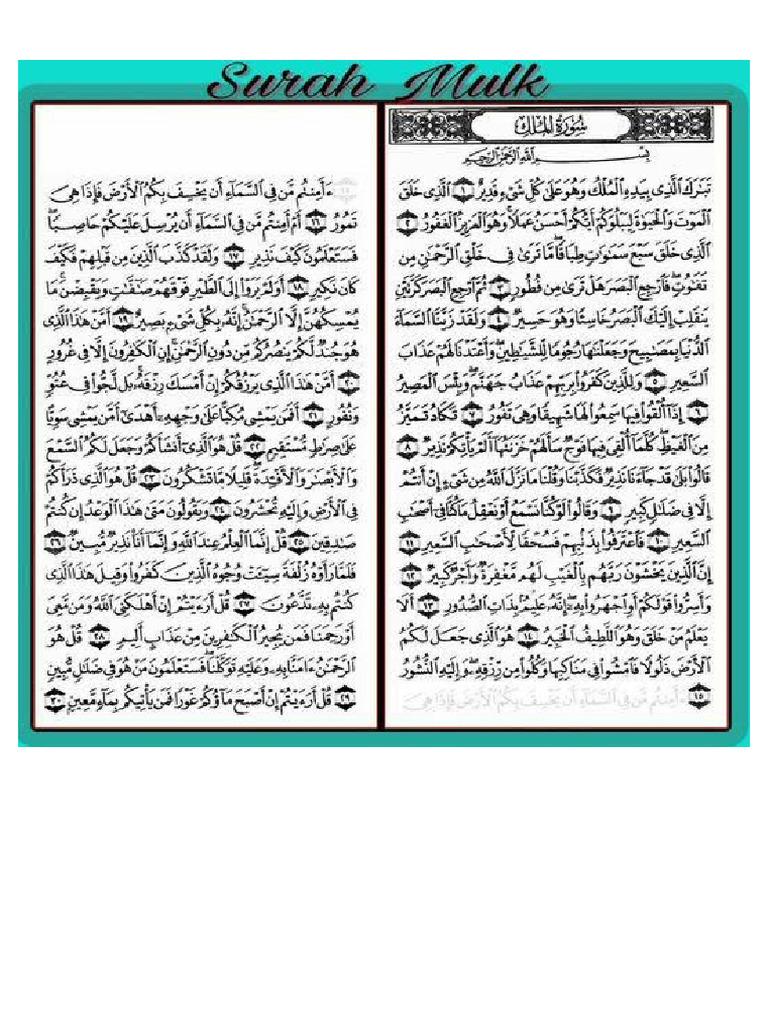 Surah Mulk
سُورَةُ المُلْكِ
بِسْمِ اللَّهِ الرَّحْمَٰنِ الرَّحِيمِ
تَبَٰرَكَ ٱلَّذِي بِيَدِهِ ٱلْمُلْكُ وَهُوَ عَلَىٰ كُلِّ شَيْءٍ قَدِيرٌ ١ ٱلَّذِي خَلَقَ
ٱلْمَوْتَ وَٱلْحَيَوٰةَ لِيَبْلُوَكُمْ أَيُّكُمْ أَحْسَنُ عَمَلًا وَهُوَ ٱلْعَزِيزُ ٱلْغَفُورُ ٢
ٱلَّذِي خَلَقَ سَبْعَ سَمَٰوَٰتٍ طِبَاقًا مَّا تَرَىٰ فِي خَلْقِ ٱلرَّحْمَٰنِ مِن
تَفَٰوُتٍ فَٱرْجِعِ ٱلْبَصَرَ هَلْ تَرَىٰ مِن فُطُورٍ ٣ ثُمَّ ٱرْجِعِ ٱلْبَصَرَ كَرَّتَيْنِ
يَنقَلِبْ إِلَيْكَ ٱلْبَصَرُ خَاسِئًا وَهُوَ حَسِيرٌ ٤ وَلَقَدْ زَيَّنَّا ٱلسَّمَآءَ
ٱلدُّنْيَا بِمَصَٰبِيحَ وَجَعَلْنَٰهَا رُجُومًا لِّلشَّيَٰطِينِ وَأَعْتَدْنَا لَهُمْ عَذَابَ
ٱلسَّعِيرِ ٥ وَلِلَّذِينَ كَفَرُوا۟ بِرَبِّهِمْ عَذَابُ جَهَنَّمَ وَبِئْسَ ٱلْمَصِيرُ
٦ إِذَآ أُلْقُوا۟ فِيهَا سَمِعُوا۟ لَهَا شَهِيقًا وَهِيَ تَفُورُ ٧ تَكَادُ تَمَيَّزُ
مِنَ ٱلْغَيْظِ كُلَّمَآ أُلْقِيَ فِيهَا فَوْجٌ سَأَلَهُمْ خَزَنَتُهَآ أَلَمْ يَأْتِكُمْ نَذِيرٌ ٨
قَالُوا۟ بَلَىٰ قَدْ جَآءَنَا نَذِيرٌ فَكَذَّبْنَا وَقُلْنَا مَا نَزَّلَ ٱللَّهُ مِن شَيْءٍ إِنْ أَنتُمْ
إِلَّا فِي ضَلَٰلٍ كَبِيرٍ ٩ وَقَالُوا۟ لَوْ كُنَّا نَسْمَعُ أَوْ نَعْقِلُ مَا كُنَّا فِيٓ أَصْحَٰبِ
ٱلسَّعِيرِ ١٠ فَٱعْتَرَفُوا۟ بِذَنۢبِهِمْ فَسُحْقًا لِّأَصْحَٰبِ ٱلسَّعِيرِ ١١
إِنَّ ٱلَّذِينَ يَخْشَوْنَ رَبَّهُم بِٱلْغَيْبِ لَهُم مَّغْفِرَةٌ وَأَجْرٌ كَبِيرٌ ١٢
وَأَسِرُّوا۟ قَوْلَكُمْ أَوِ ٱجْهَرُوا۟ بِهِۦٓ إِنَّهُۥ عَلِيمٌۢ بِذَاتِ ٱلصُّدُورِ ١٣ أَلَا
يَعْلَمُ مَنْ خَلَقَ وَهُوَ ٱللَّطِيفُ ٱلْخَبِيرُ ١٤ هُوَ ٱلَّذِي جَعَلَ لَكُمُ
ٱلْأَرْضَ ذَلُولًا فَٱمْشُوا۟ فِي مَنَاكِبِهَا وَكُلُوا۟ مِن رِّزْقِهِۦ وَإِلَيْهِ ٱلنُّشُورُ
١٥ ءَأَمِنتُم مَّن فِي ٱلسَّمَآءِ أَن يَخْسِفَ بِكُمُ ٱلْأَرْضَ فَإِذَا هِيَ
ءَأَمِنتُم مَّن فِي ٱلسَّمَآءِ أَن يَخْسِفَ بِكُمُ ٱلْأَرْضَ فَإِذَا هِيَ
تَمُورُ ١٦ أَمْ أَمِنتُم مَّن فِي ٱلسَّمَآءِ أَن يُرْسِلَ عَلَيْكُمْ حَاصِبًا
فَسَتَعْلَمُونَ كَيْفَ نَذِيرِ ١٧ وَلَقَدْ كَذَّبَ ٱلَّذِينَ مِن قَبْلِهِمْ فَكَيْفَ
كَانَ نَكِيرِ ١٨ أَوَلَمْ يَرَوْا۟ إِلَى ٱلطَّيْرِ فَوْقَهُمْ صَٰٓفَّٰتٍ وَيَقْبِضْنَ مَا
يُمْسِكُهُنَّ إِلَّا ٱلرَّحْمَٰنُ إِنَّهُۥ بِكُلِّ شَيْءٍۭ بَصِيرٌ ١٩ أَمَّنْ هَٰذَا ٱلَّذِي
هُوَ جُندٌ لَّكُمْ يَنصُرُكُم مِّن دُونِ ٱلرَّحْمَٰنِ إِنِ ٱلْكَٰفِرُونَ إِلَّا فِي غُرُورٍ
٢٠ أَمَّنْ هَٰذَا ٱلَّذِي يَرْزُقُكُمْ إِنْ أَمْسَكَ رِزْقَهُۥ بَل لَّجُّوا۟ فِي عُتُوٍّ
وَنُفُورٍ ٢١ أَفَمَن يَمْشِي مُكِبًّا عَلَىٰ وَجْهِهِۦٓ أَهْدَىٰٓ أَمَّن يَمْشِي سَوِيًّا
عَلَىٰ صِرَٰطٍ مُّسْتَقِيمٍ ٢٢ قُلْ هُوَ ٱلَّذِيٓ أَنشَأَكُمْ وَجَعَلَ لَكُمُ ٱلسَّمْعَ
وَٱلْأَبْصَٰرَ وَٱلْأَفْـِٔدَةَ قَلِيلًا مَّا تَشْكُرُونَ ٢٣ قُلْ هُوَ ٱلَّذِي ذَرَأَكُمْ
فِي ٱلْأَرْضِ وَإِلَيْهِ تُحْشَرُونَ ٢٤ وَيَقُولُونَ مَتَىٰ هَٰذَا ٱلْوَعْدُ إِن كُنتُمْ
صَٰدِقِينَ ٢٥ قُلْ إِنَّمَا ٱلْعِلْمُ عِندَ ٱللَّهِ وَإِنَّمَآ أَنَا۠ نَذِيرٌ مُّبِينٌ ٢٦
فَلَمَّا رَأَوْهُ زُلْفَةً سِيٓـَٔتْ وُجُوهُ ٱلَّذِينَ كَفَرُوا۟ وَقِيلَ هَٰذَا ٱلَّذِي
كُنتُم بِهِۦ تَدَّعُونَ ٢٧ قُلْ أَرَءَيْتُمْ إِنْ أَهْلَكَنِيَ ٱللَّهُ وَمَن مَّعِيَ
أَوْ رَحِمَنَا فَمَن يُجِيرُ ٱلْكَٰفِرِينَ مِنْ عَذَابٍ أَلِيمٍ ٢٨ قُلْ هُوَ
ٱلرَّحْمَٰنُ ءَامَنَّا بِهِۦ وَعَلَيْهِ تَوَكَّلْنَا فَسَتَعْلَمُونَ مَنْ هُوَ فِي ضَلَٰلٍ مُّبِينٍ
٢٩ قُلْ أَرَءَيْتُمْ إِنْ أَصْبَحَ مَآؤُكُمْ غَوْرًا فَمَن يَأْتِيكُم بِمَآءٍ مَّعِينٍۭ ٣٠